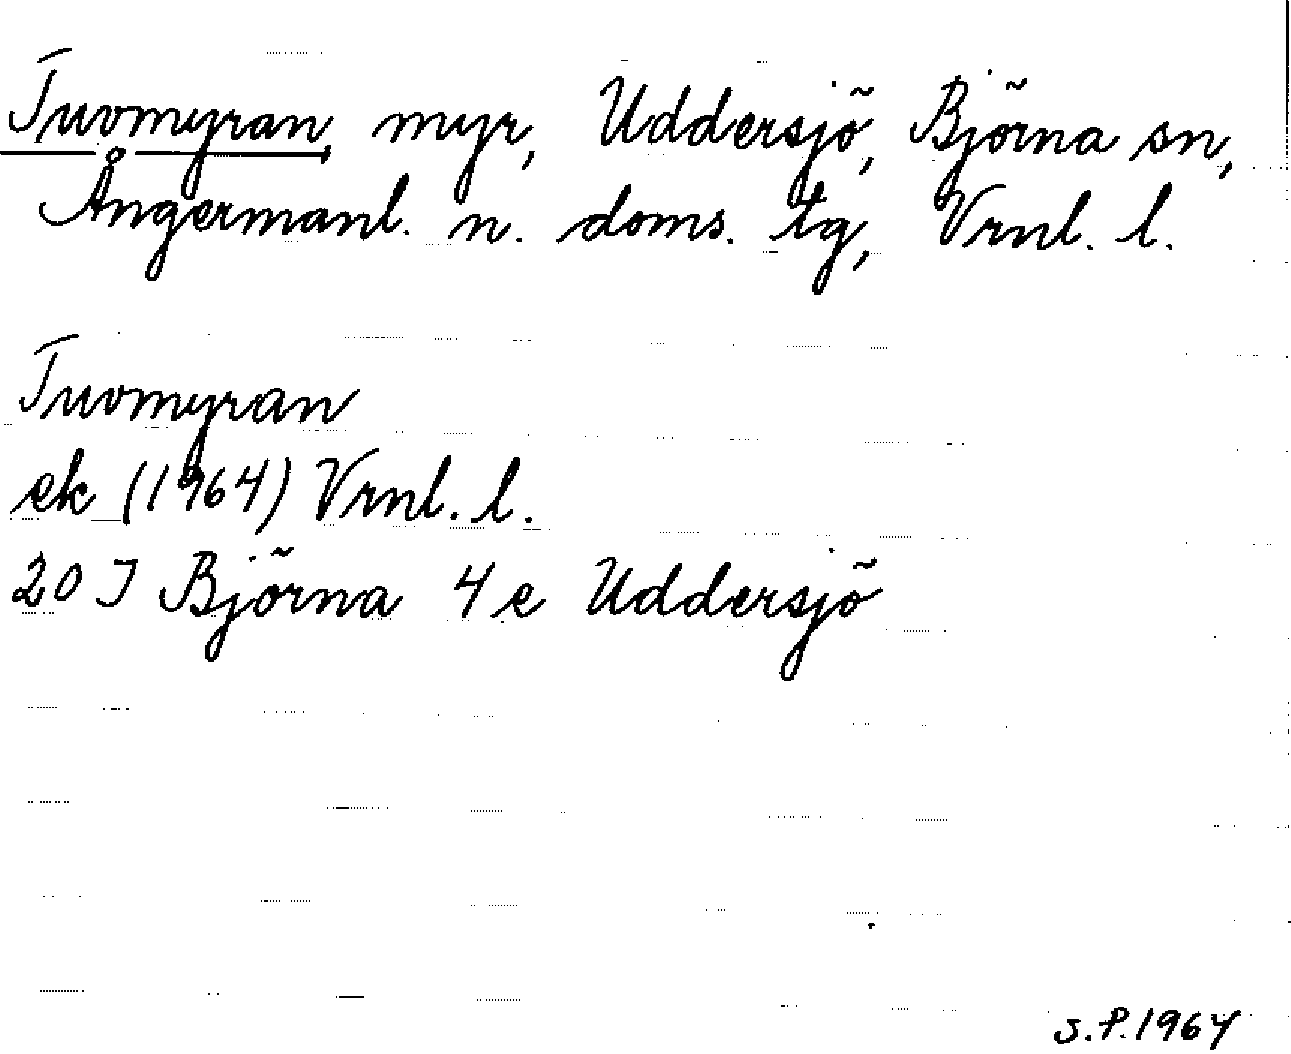 Tuvomyran, myr, Uddersjö, Björna sn,
Ångermanl. n. doms. tg, Vrnl. l.
Tuvomyran
ek (1964) Vrnl. l.
20 I Björna 4 e Uddersjö
S.P. 1967